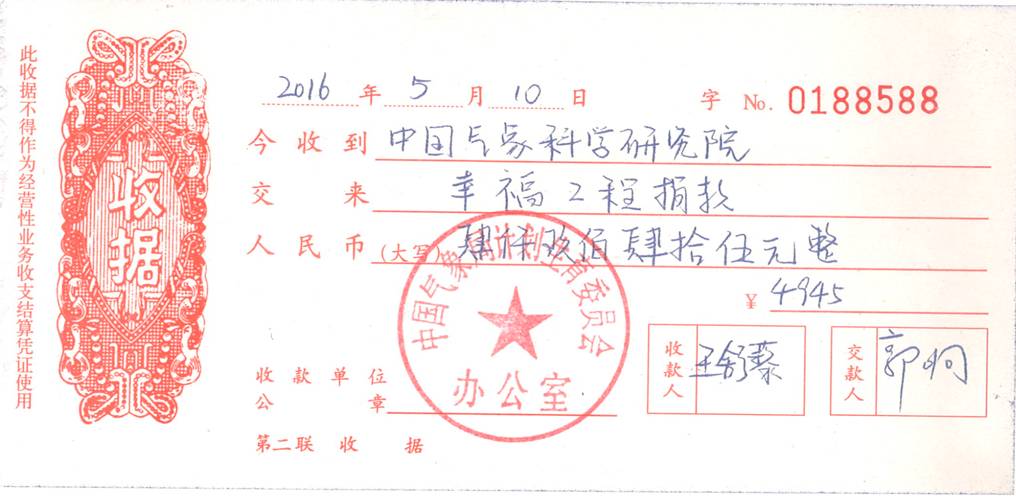 此收据不得作为经营性业务收支结算凭证使用
收据
2016 年 5 月 10 日 字 No. 0188588
今收到 中国气象科学研究院
交来 幸福工程捐款
人民币(大写) 肆仟玖佰肆拾伍元整
¥ 4945
中国气象局计划生育委员会
办公室
收款单位
公章
收款人 王舒
交款人 郭炯
第二联 收据